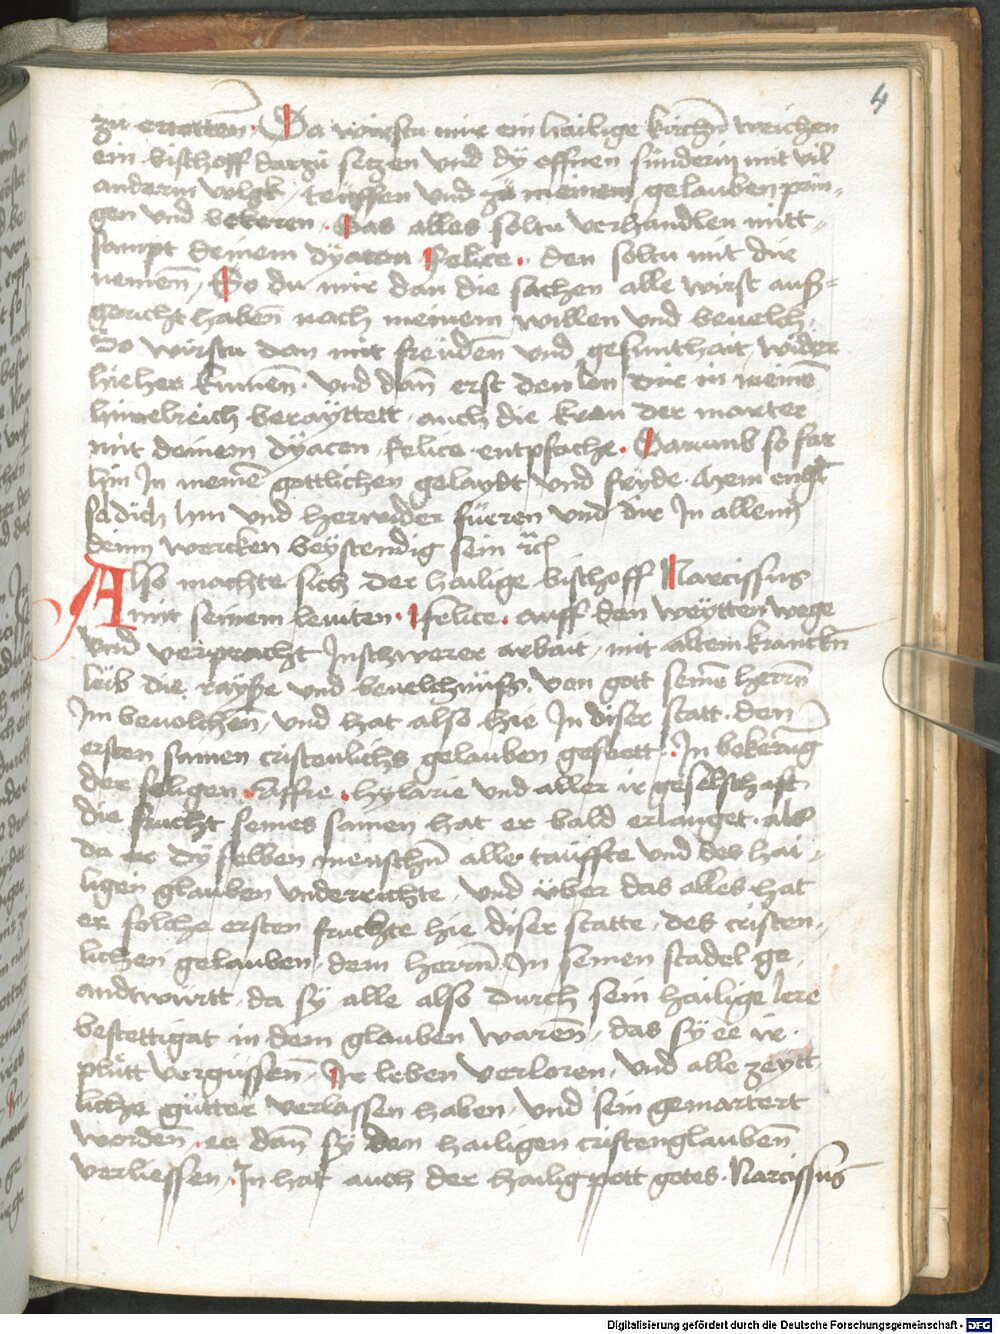 4
zu erretten. Da wirstu mir ein hailige kirchñ weichen
ein bischoff darzu setzen vnd dÿ offnen sünderin mit vil
anderm volgk / teüffen vnd zu meinem gelauben prin-
gen vnd bekeren. Das alles soltu verhandlen mitt-
sampt deinem dÿacon Felice. den soltu mit dir
nemen, So du mir dan die sachen alle wirst auß-
gericht haben nach meinem willen vnd beuelch.
So wirstu dan mit freüden vnd gesunthait wider
hieher kumen. vnd dañ erst den lon dir in meinē
himelreich beraÿttett. auch die kron der marter
mit deinem dÿacen Felice entpfache. Darumb so far
hin Jn meinē gottlichen gelaydt vnd fryde. Mein engl
sol dich hin vnd herwider füeren vnd dir Jn allenn
deinn wercken beÿstendig sein &c
Also machte sich der hailige bischoff Narcissus
mit seinem leuiten. Felice. auff den weÿtten wege
vnd verpracht Jnschwerer arbait, mit altem kranckñ
leib die rayße vnd beuelchnüß. von gott seinē herrñ
Jm beuolchen, vnd hat also hie Jn diser statt. den
ersten samen cristenlichs gelauben geseett. Jn bekerūg
der seligen. Affre. hylarie vnd aller ir geselschafft
die frucht seines samen hat er bald erlanget. als
da er dÿ selben menschñ alle tauffte vnd des hai-
ligen glauben vnderrichte, vnd über das alles hat
er solche ersten fruchte hie diser statte, des cristen-
lichen gelauben, dem herrñ. Jn seinen stadel ge-
andtwürtt. da sÿ alle also durch sein hailige lere
bestettigat in dem glauben warēn, das sÿ ee ir
plůtt vergüssen, Jr leben verloren, vnd alle zeytt-
liche gütter verlassen haben, vnd sein gemartert
worden, ee dañ sÿ den hailigen cristenglauben
verliessen, Jn hat auch der hailig pott gotes. Narcissus
Digitalisierung gefördert durch die Deutsche Forschungsgemeinschaft - DFG